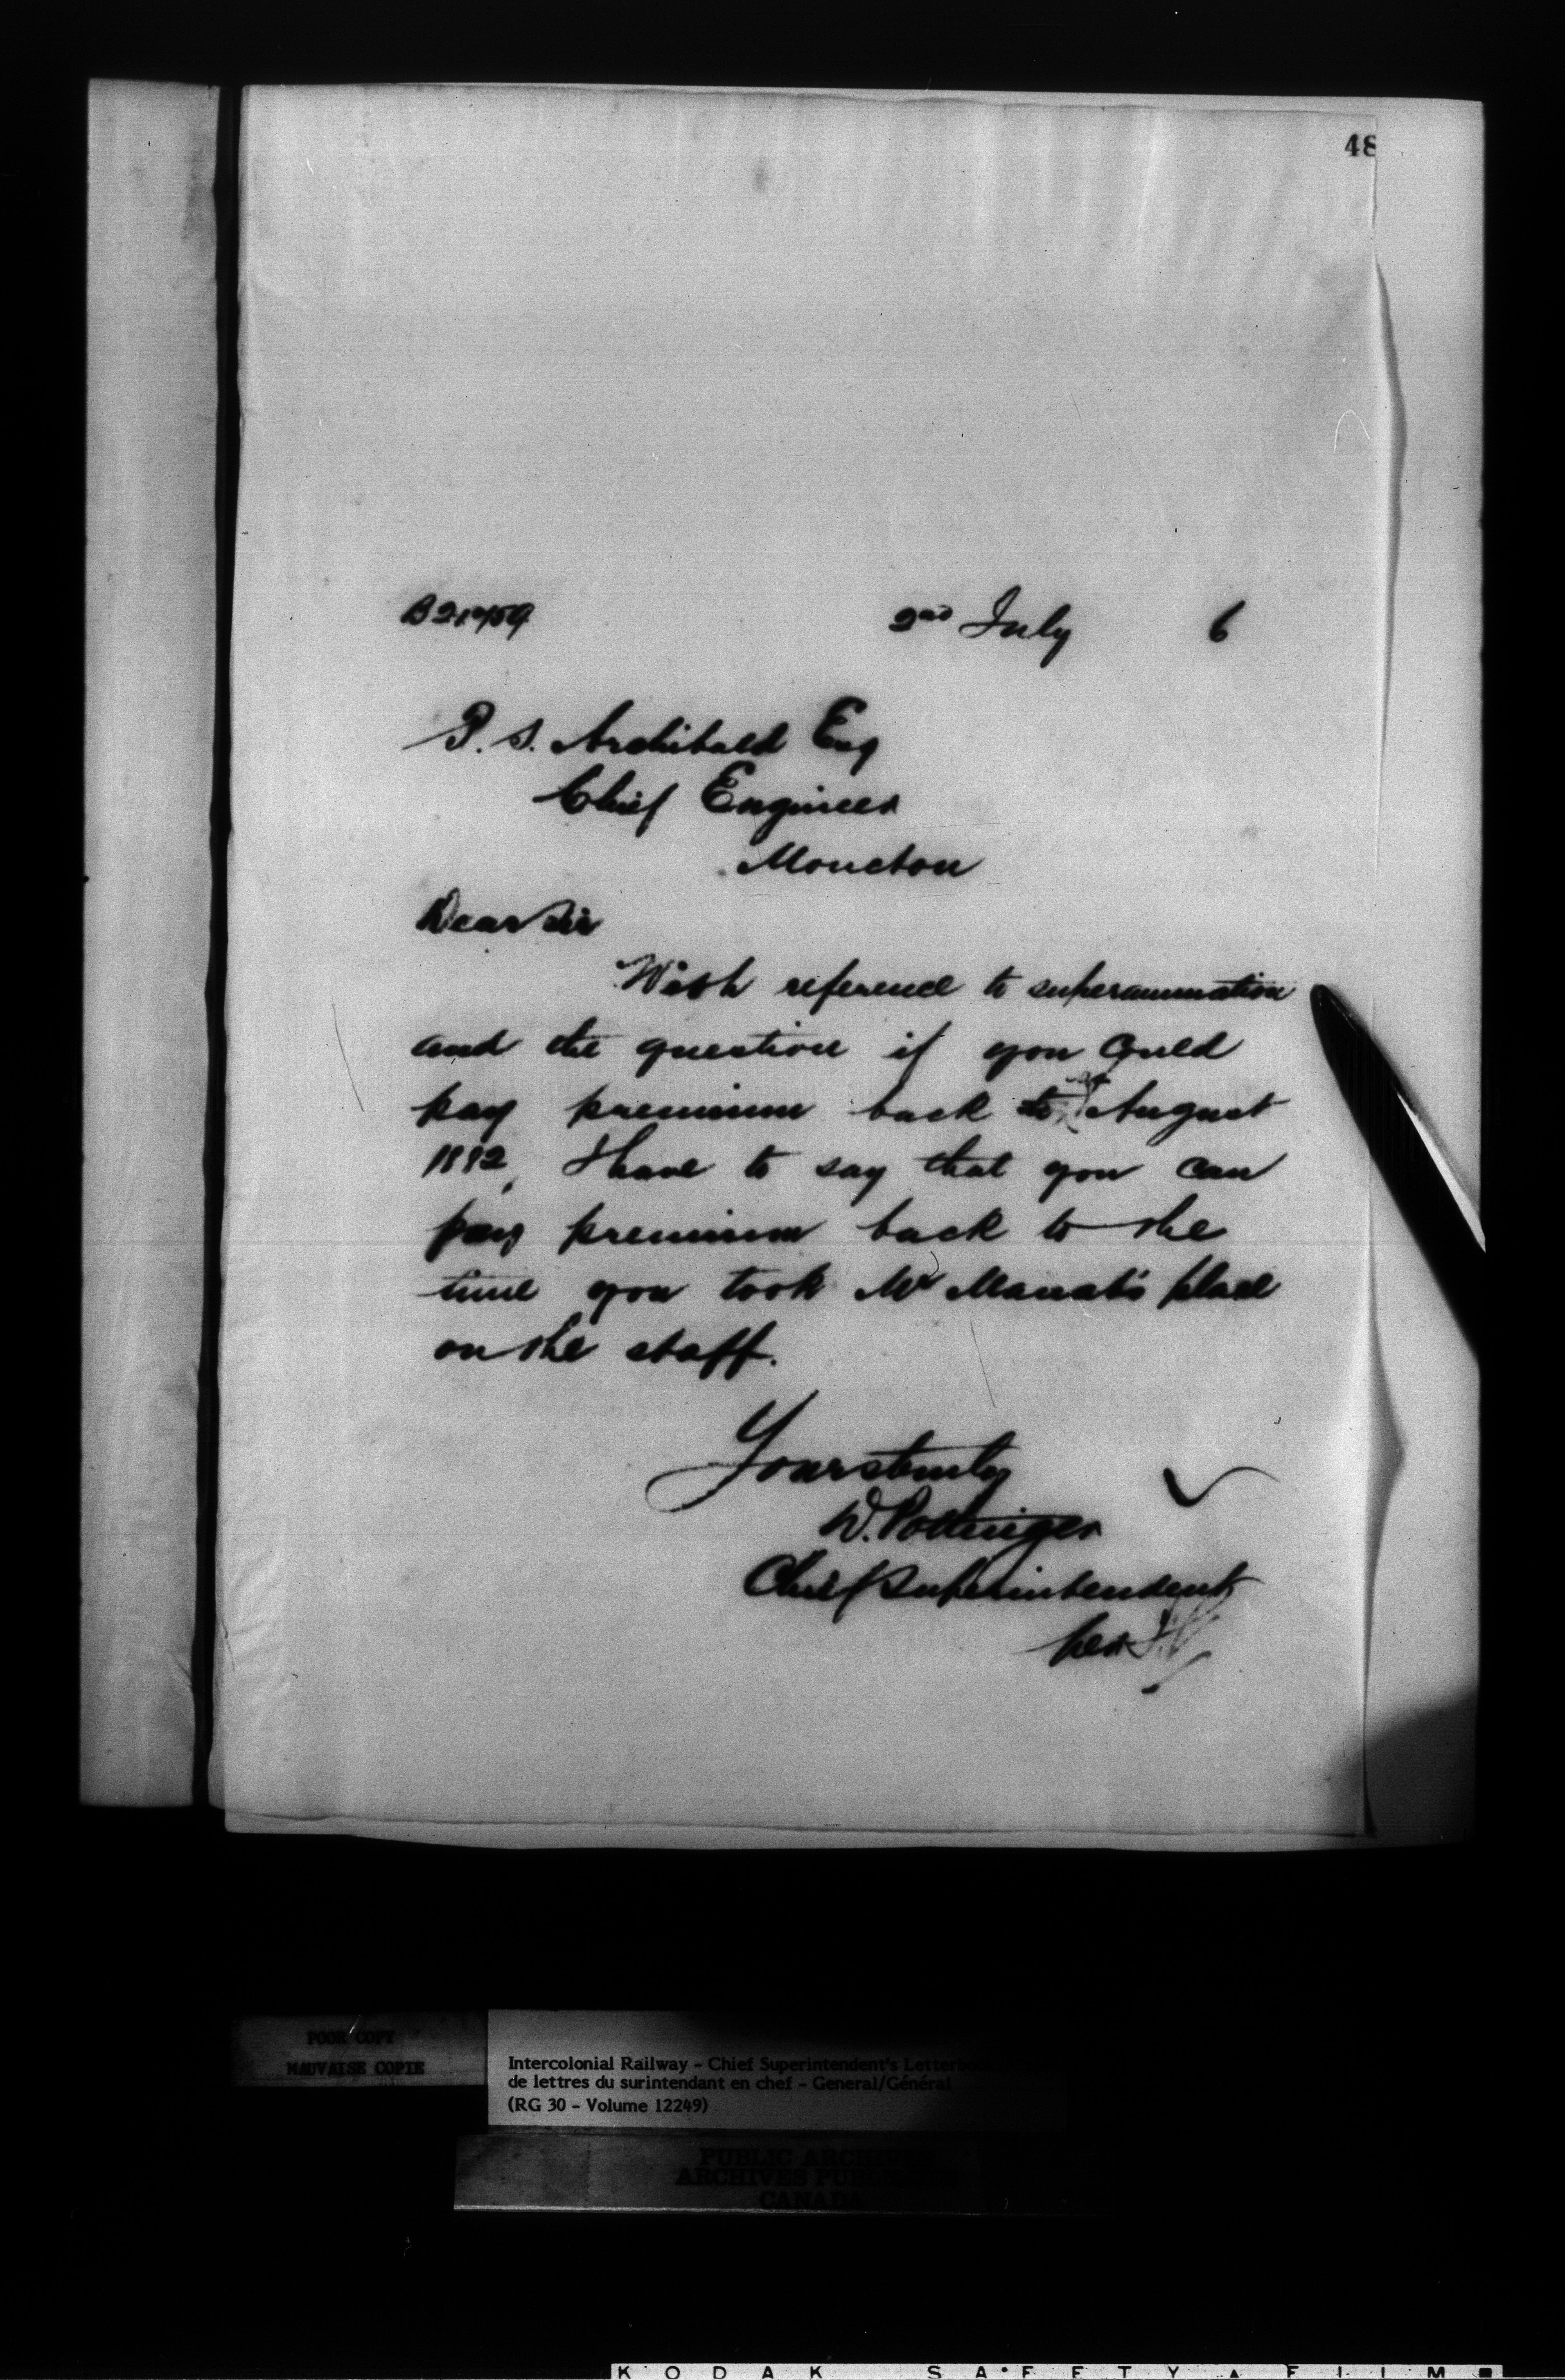 48
2nd July 6
P. S. Archibald Esq
Chief Engineer
Moncton
Dear Sir
With reference to superannuation
and the question if you could
pay premium back to August
1882, I have to say that you can
pay premium back to the
time you took Mr place
on the staff.
Yours truly
D. Pottinger
Chief Superintendent
per
POOR COPY
MAUVAISE COPIE
Intercolonial Railway - Chief Superintendent's
de lettres du surintendant en chef - General/Général
(RG 30 - Volume 12249)
PUBLIC ARCHIVES
ARCHIVES PUBLIQUES
CANADA
KODAK SAFETY FILM